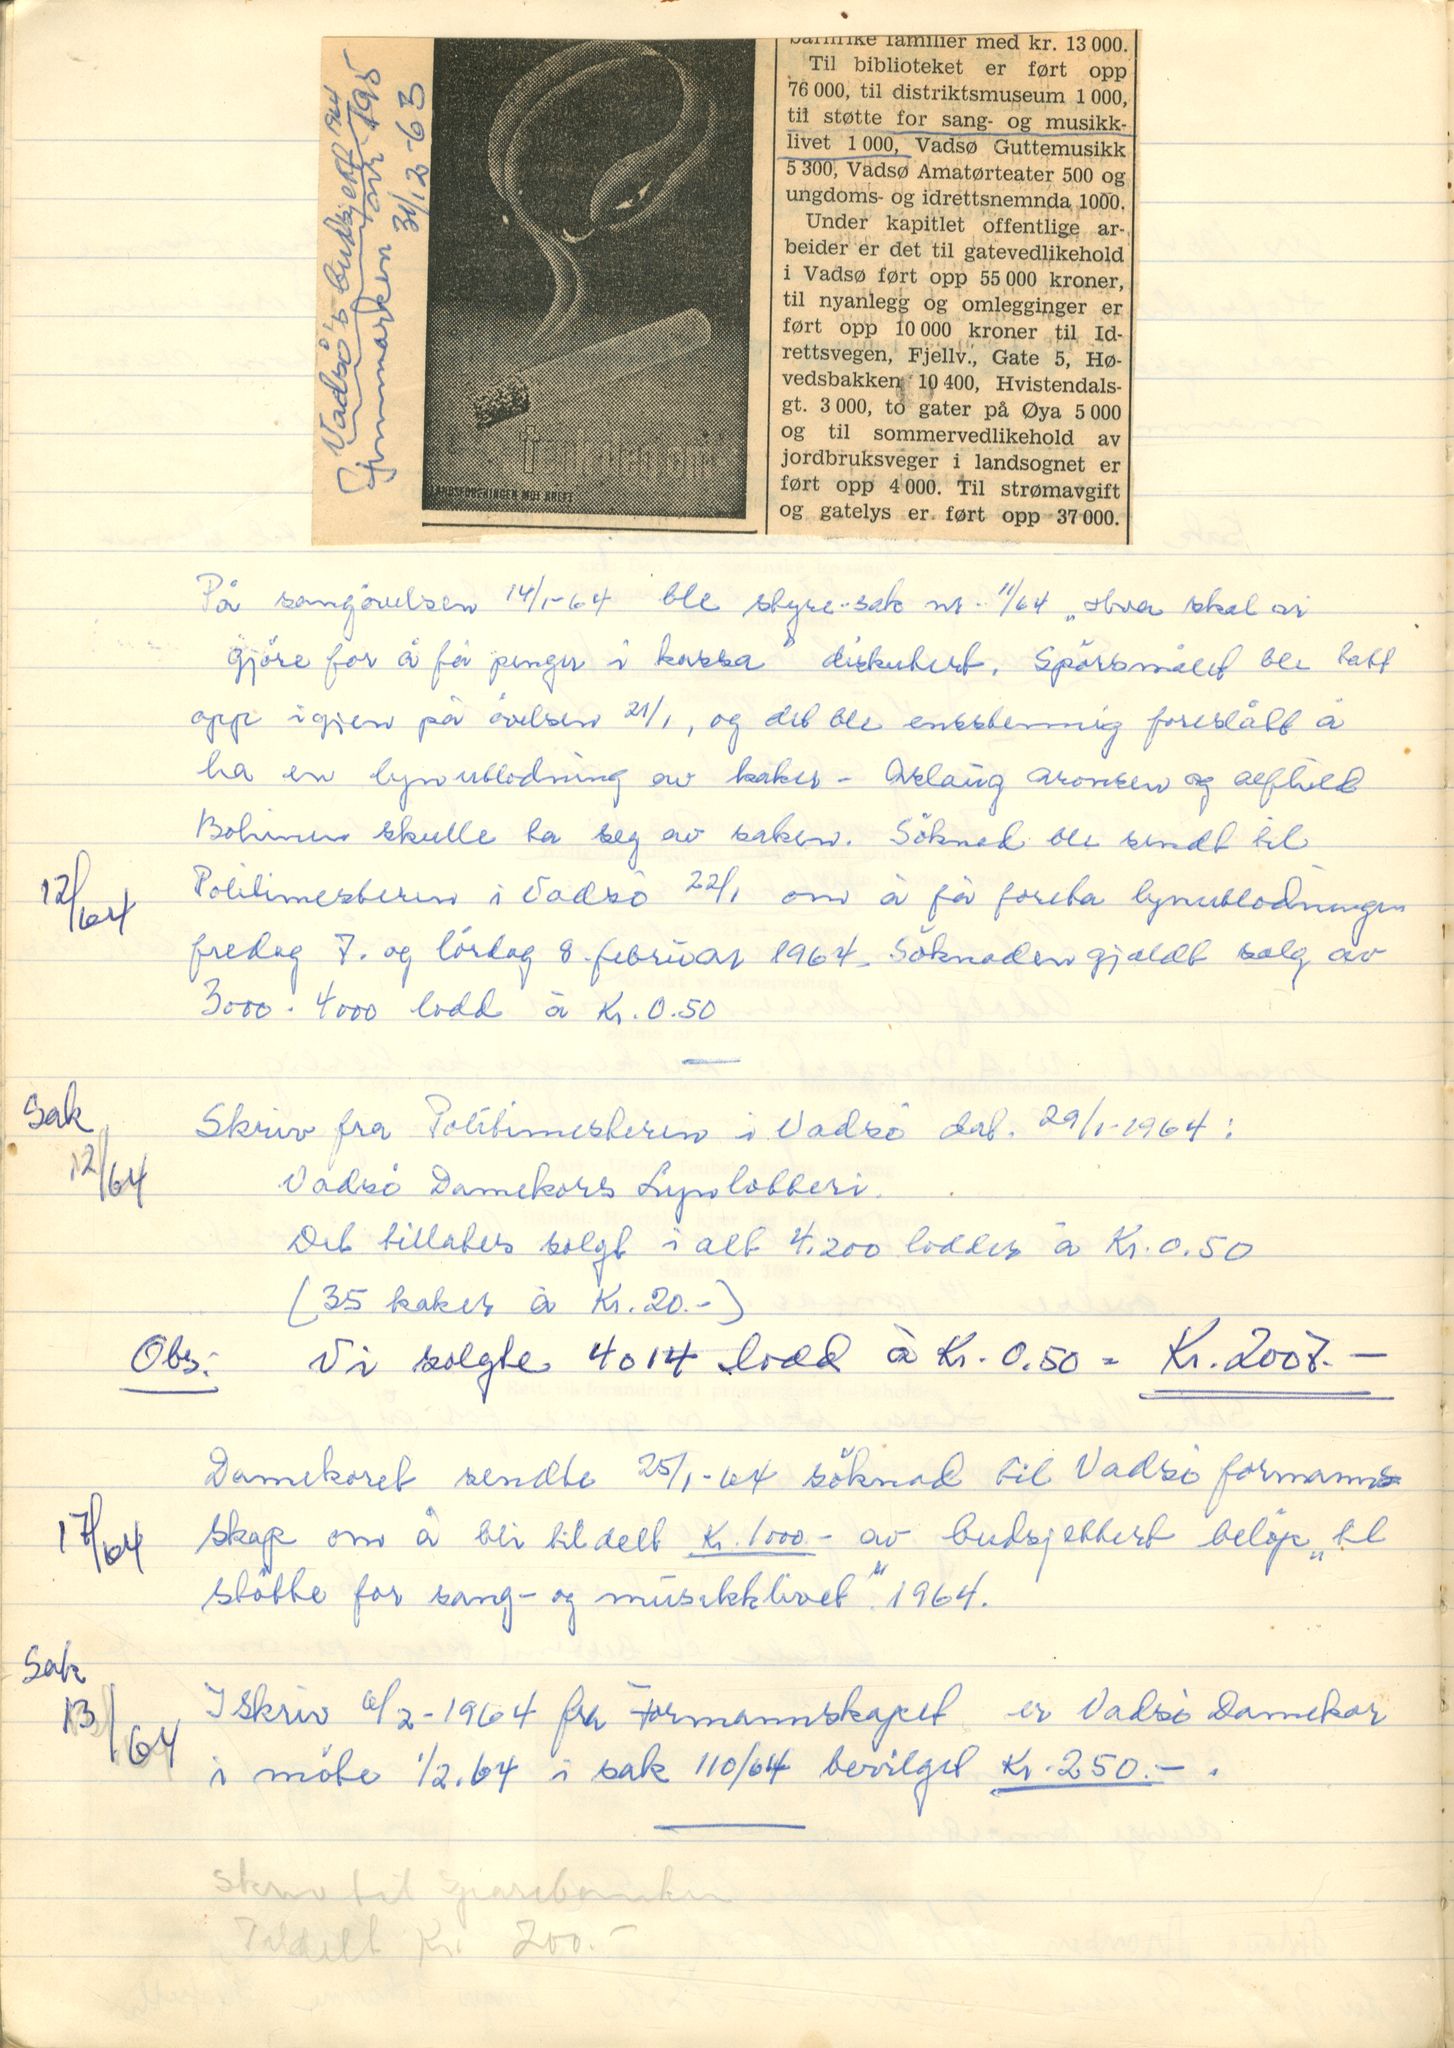 Vadsø's budsjett
Finnmarken 31/12-63
LANDSFORENINGEN MOT KREFT
barnrike familier med kr. 13 000.
Til biblioteket er ført opp
76 000, til distriktsmuseum 1 000,
til støtte for sang- og musikk-
livet 1 000, Vadsø Guttemusikk
5 300, Vadsø Amatørteater 500 og
ungdoms- og idrettsnemnda 1000.
Under kapitlet offentlige ar-
beider er det til gatevedlikehold
i Vadsø ført opp 55 000 kroner,
til nyanlegg og omlegginger er
ført opp 10 000 kroner til Id-
rettsvegen, Fjellv., Gate 5, Hø-
vedsbakken 10 400, Hvistendals-
gt. 3 000, to gater på Øya 5 000
og til sommervedlikehold av
jordbruksveger i landsognet er
ført opp 4 000. Til strømavgift
og gatelys er ført opp 37 000.
På sangøvelsen 14/1-64 ble styre-sak nr. 11/64 „Hva skal vi
gjöre for å få penger i kassa" diskutert. Spörsmålet ble tatt
opp igjen på övelsen 21/1, og det ble enstemmig foreslått å
ha en lynutlodning av kaker - Aslaug Aronsen og Alfhild
Bohinen skulle ta seg av saken. Söknad ble sendt til
12/64 Politimesteren i Vadsö 22/1 om å få foreta lynutlodningen
fredag 7. og lördag 8. februar 1964. Söknaden gjaldt salg av
3000 - 4000 lodd à Kr. 0.50
Sak 12/64 Skriv fra Politimesteren i Vadsö dat. 29/1-1964:
Vadsö Damekors Lynlotteri.
Det tillates solgt i alt 4.200 lodder à Kr. 0.50
(35 kaker à Kr. 20.-)
Obs: Vi solgte 4014 lodd à Kr. 0.50 = Kr. 2007.-
Damekoret sendte 25/1-64 söknad til Vadsö formanns-
17/64 skap om å bli tildelt Kr. 1000.- av budsjettert belöp „til
stötte for sang- og musikklivet" 1964.
Sak 13/64 I skriv 6/2-1964 fra Formannskapet er Vadsö Damekor
i möte 1/2.64 i sak 110/64 bevilget Kr. 250.-.
Skriv til Sparebanken
Tildelt Kr. 200.-